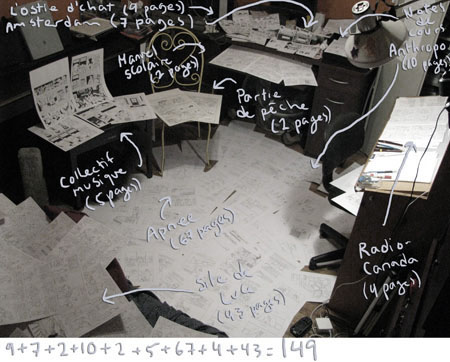 L'ostie d'chat (9 pages)
Amsterdam (7 pages)
Manuel
scolaire
(2 pages)
Notes
de
cours
Anthropo.
(10 pages)
Partie
de pêche
(2 pages)
Collectif
musique
(5 pages)
Apnée
(67 pages)
Site de
Luce
(43 pages)
Radio-
Canada
(4 pages)
9+7+2+10+2+5+67+4+43=149